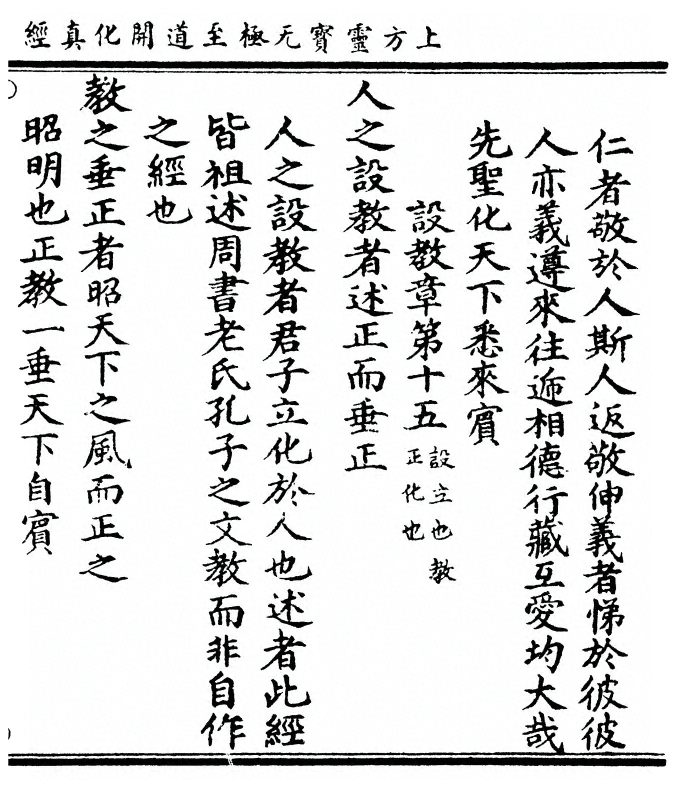 上方靈寶无極至道開化真經
仁者敬於人斯人返敬伸義者悌於彼彼
人亦義遵來往遞相德行藏互愛均大哉
先聖化天下悉來賓
設教章第十五設立也教正化也
人之設教者述正而垂正
人之設教者君子立化於人也述者此經
皆祖述周書老氏孔子之文教而非自作
之經也
教之垂正者昭天下之風而正之
昭明也正教一垂天下自賓